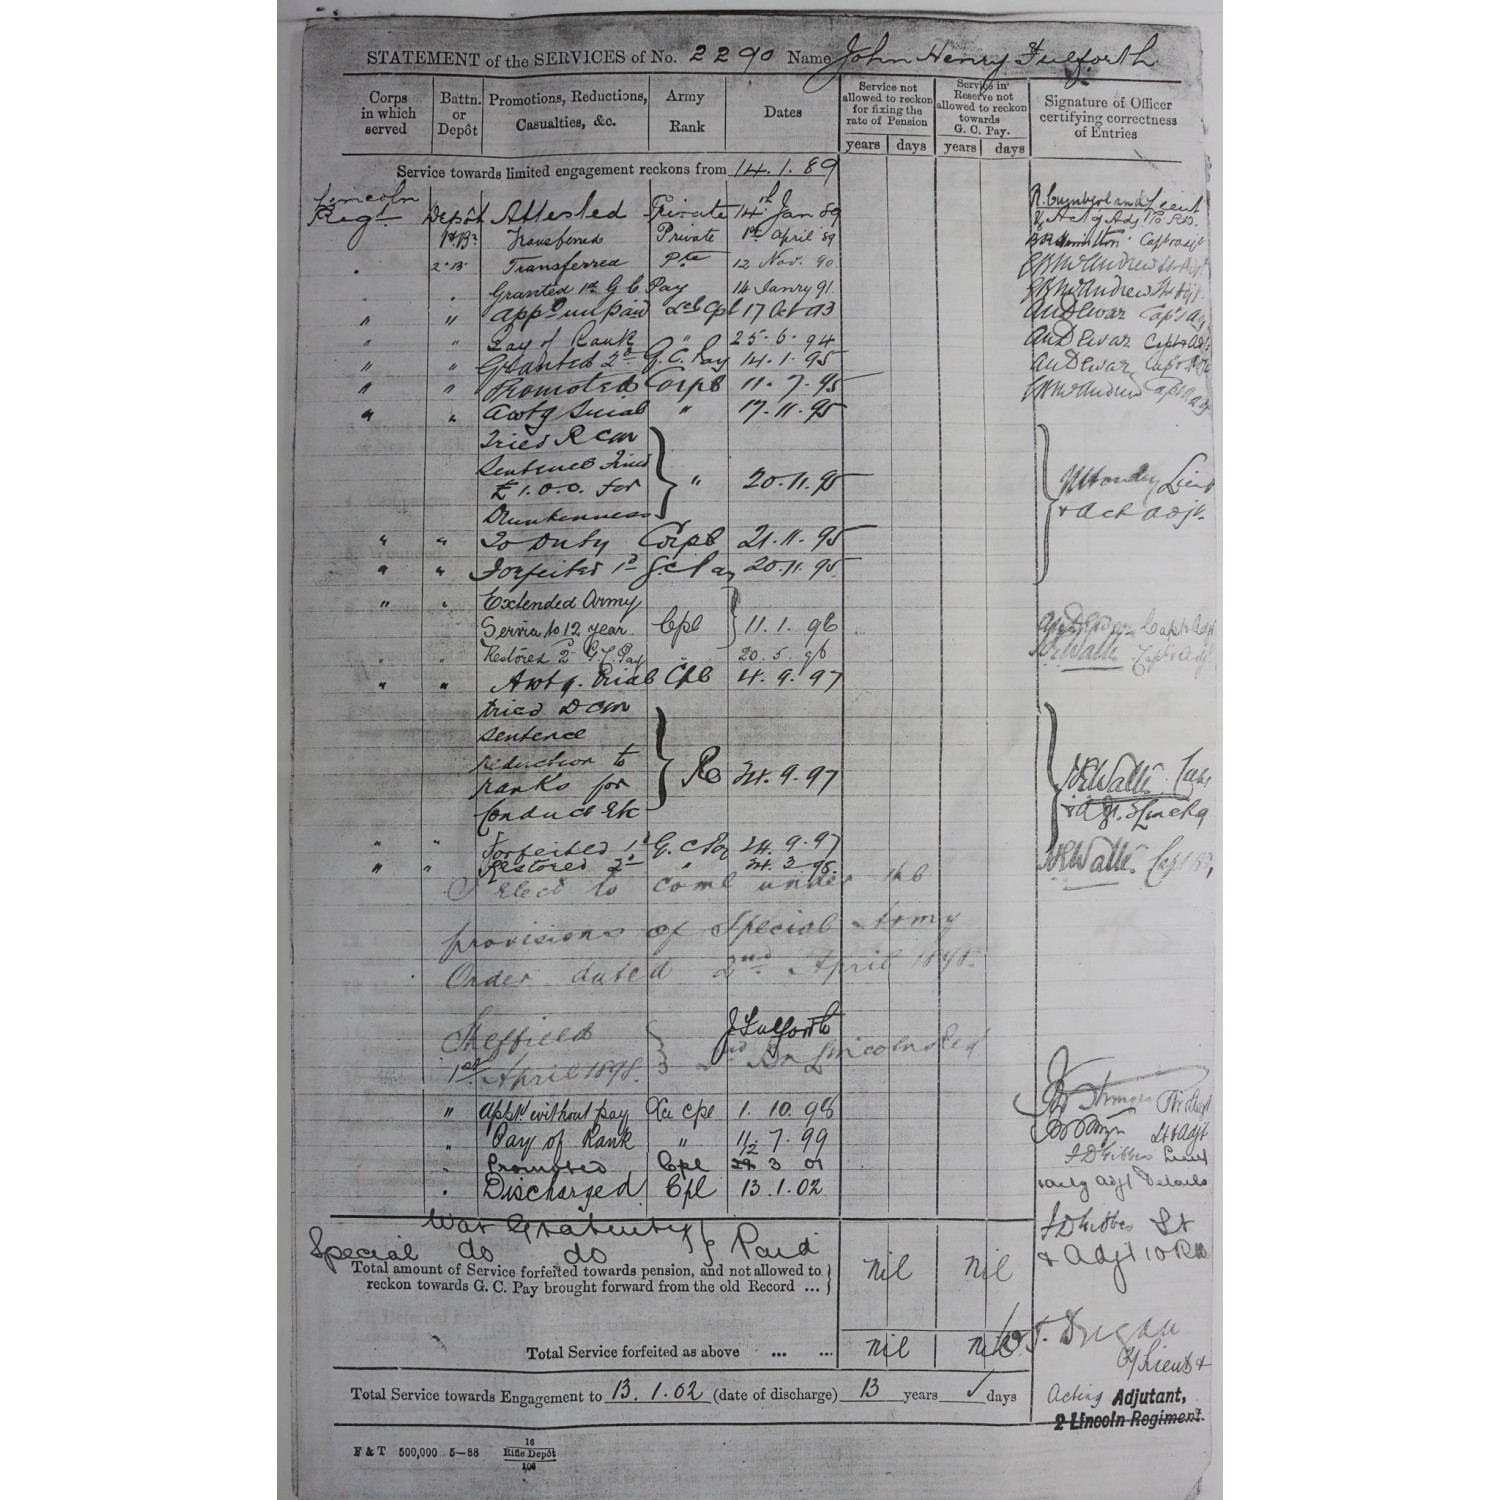 STATEMENT of the SERVICES of No. 2290 Name John Henry Fulforth
Corps in which served
Battn. or Depôt
Promotions, Reductions, Casualties, &c.
Army Rank
Dates
Service not allowed to reckon for fixing the rate of Pension
years days
Service in Reserve not allowed to reckon towards G. C. Pay.
years days
Signature of Officer certifying correctness of Entries
Service towards limited engagement reckons from 14.1.89
Lincoln
Regt Depôt Attested Private 14th Jan 89 R. Cumberland Lieut
1st Bn Transferred Private 1st April 89 Hamilton Capt & Adjt
2 B Transferred Pte 12 Nov. 90 McAndrew
" " Granted 1st G C Pay 14 Janry 91. McAndrew
" " Appd unpaid Lce Cpl 17 Oct 93 Dewar Capt
" " Pay of Rank " 25.6.94 Dewar Capt & Adjt
" " Granted 2d G. C. Pay 14.1.95 Dewar Capt
" " Promoted Corpl 11.7.95 McAndrew Capt
" " Awtg Trial " 17.11.95
Tried R C M
Sentence Fined
£1.0.0. for " 20.11.95 Lieut
Drunkenness & Act Adjt.
" " To Duty Corpl 21.11.95
" " Forfeited 1d G.C Pay 20.11.95
" " Extended Army
Service to 12 year Cpl 11.1.96 Capt & Adjt
" " Restored 2d G.C. Pay " 20.5.96 Wallis Capt & Adjt
" " Awtg. Trial Cpl 4.9.97
tried D C M
Sentence
reduction to
ranks for 24.9.97 Wallis
Conduct Etc
" " Forfeited 1d G. C Pay 24.9.97
" " Restored 2d " 24.3.98. Wallis Capt
I Elect to come under the
provisions of Special Army
Order dated 2nd April 1898.
J Fulforth
Sheffield
1st April 1898. 2nd Bn Lincoln Regt
" Appt. without pay Lce cpl 1.10.98
" Pay of Rank " 11.7.99 Lt & Adjt
" Promoted Cpl 3 01 F D Gibbes Lieut
" Discharged Cpl 13.1.02 & Actg Adjt Details
War Gratuity } Paid F D Gibbes Lt
Special do do & Adjt
Total amount of Service forfeited towards pension, and not allowed to
reckon towards G. C. Pay brought forward from the old Record ... nil nil
Total Service forfeited as above ... ... nil nil
Total Service towards Engagement to 13.1.02 (date of discharge) 13 years ✓ days
Acting Adjutant,
2 Lincoln Regiment.
F & T 500,000 5—88 16
Rifle Depôt
106